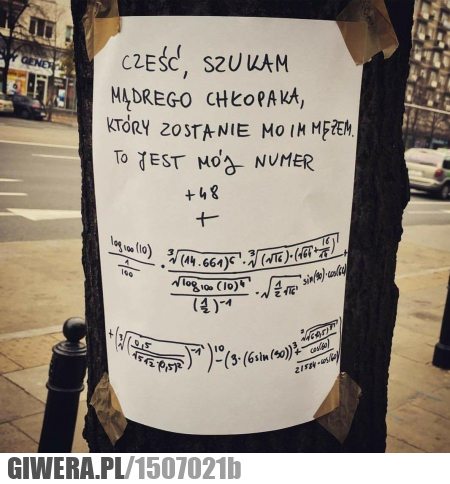 CZEŚĆ, SZUKAM
MĄDREGO CHŁOPAKA,
KTÓRY ZOSTANIE MOIM MĘŻEM.
TO JEST MÓJ NUMER
+48
+
log₁₀₀(10) / 1/100 · ³√(14.661)⁶ · ³√(√16)·(√64+16/√4) +
√log₁₀₀(10)⁴ / (1/2)⁻¹ · √1/2√16 sin(90)·cos(60)
+ (³√(0,5 / √5√2·(0,5)²)⁻¹)¹⁰ - (9·(6sin(90))³ +
cos(60)
21584·cos(60)
GIWERA.PL/1507021b